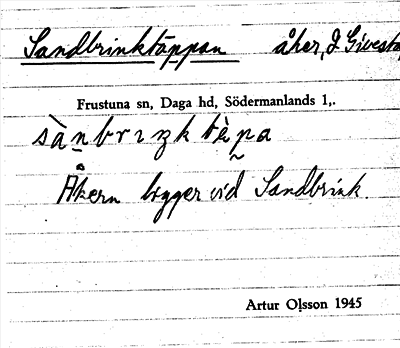 Sandbrinktäppan åker, I
Frustuna sn, Daga hd, Södermanlands l,.
Åkern ligger vid Sandbrink.
Artur Olsson 1945